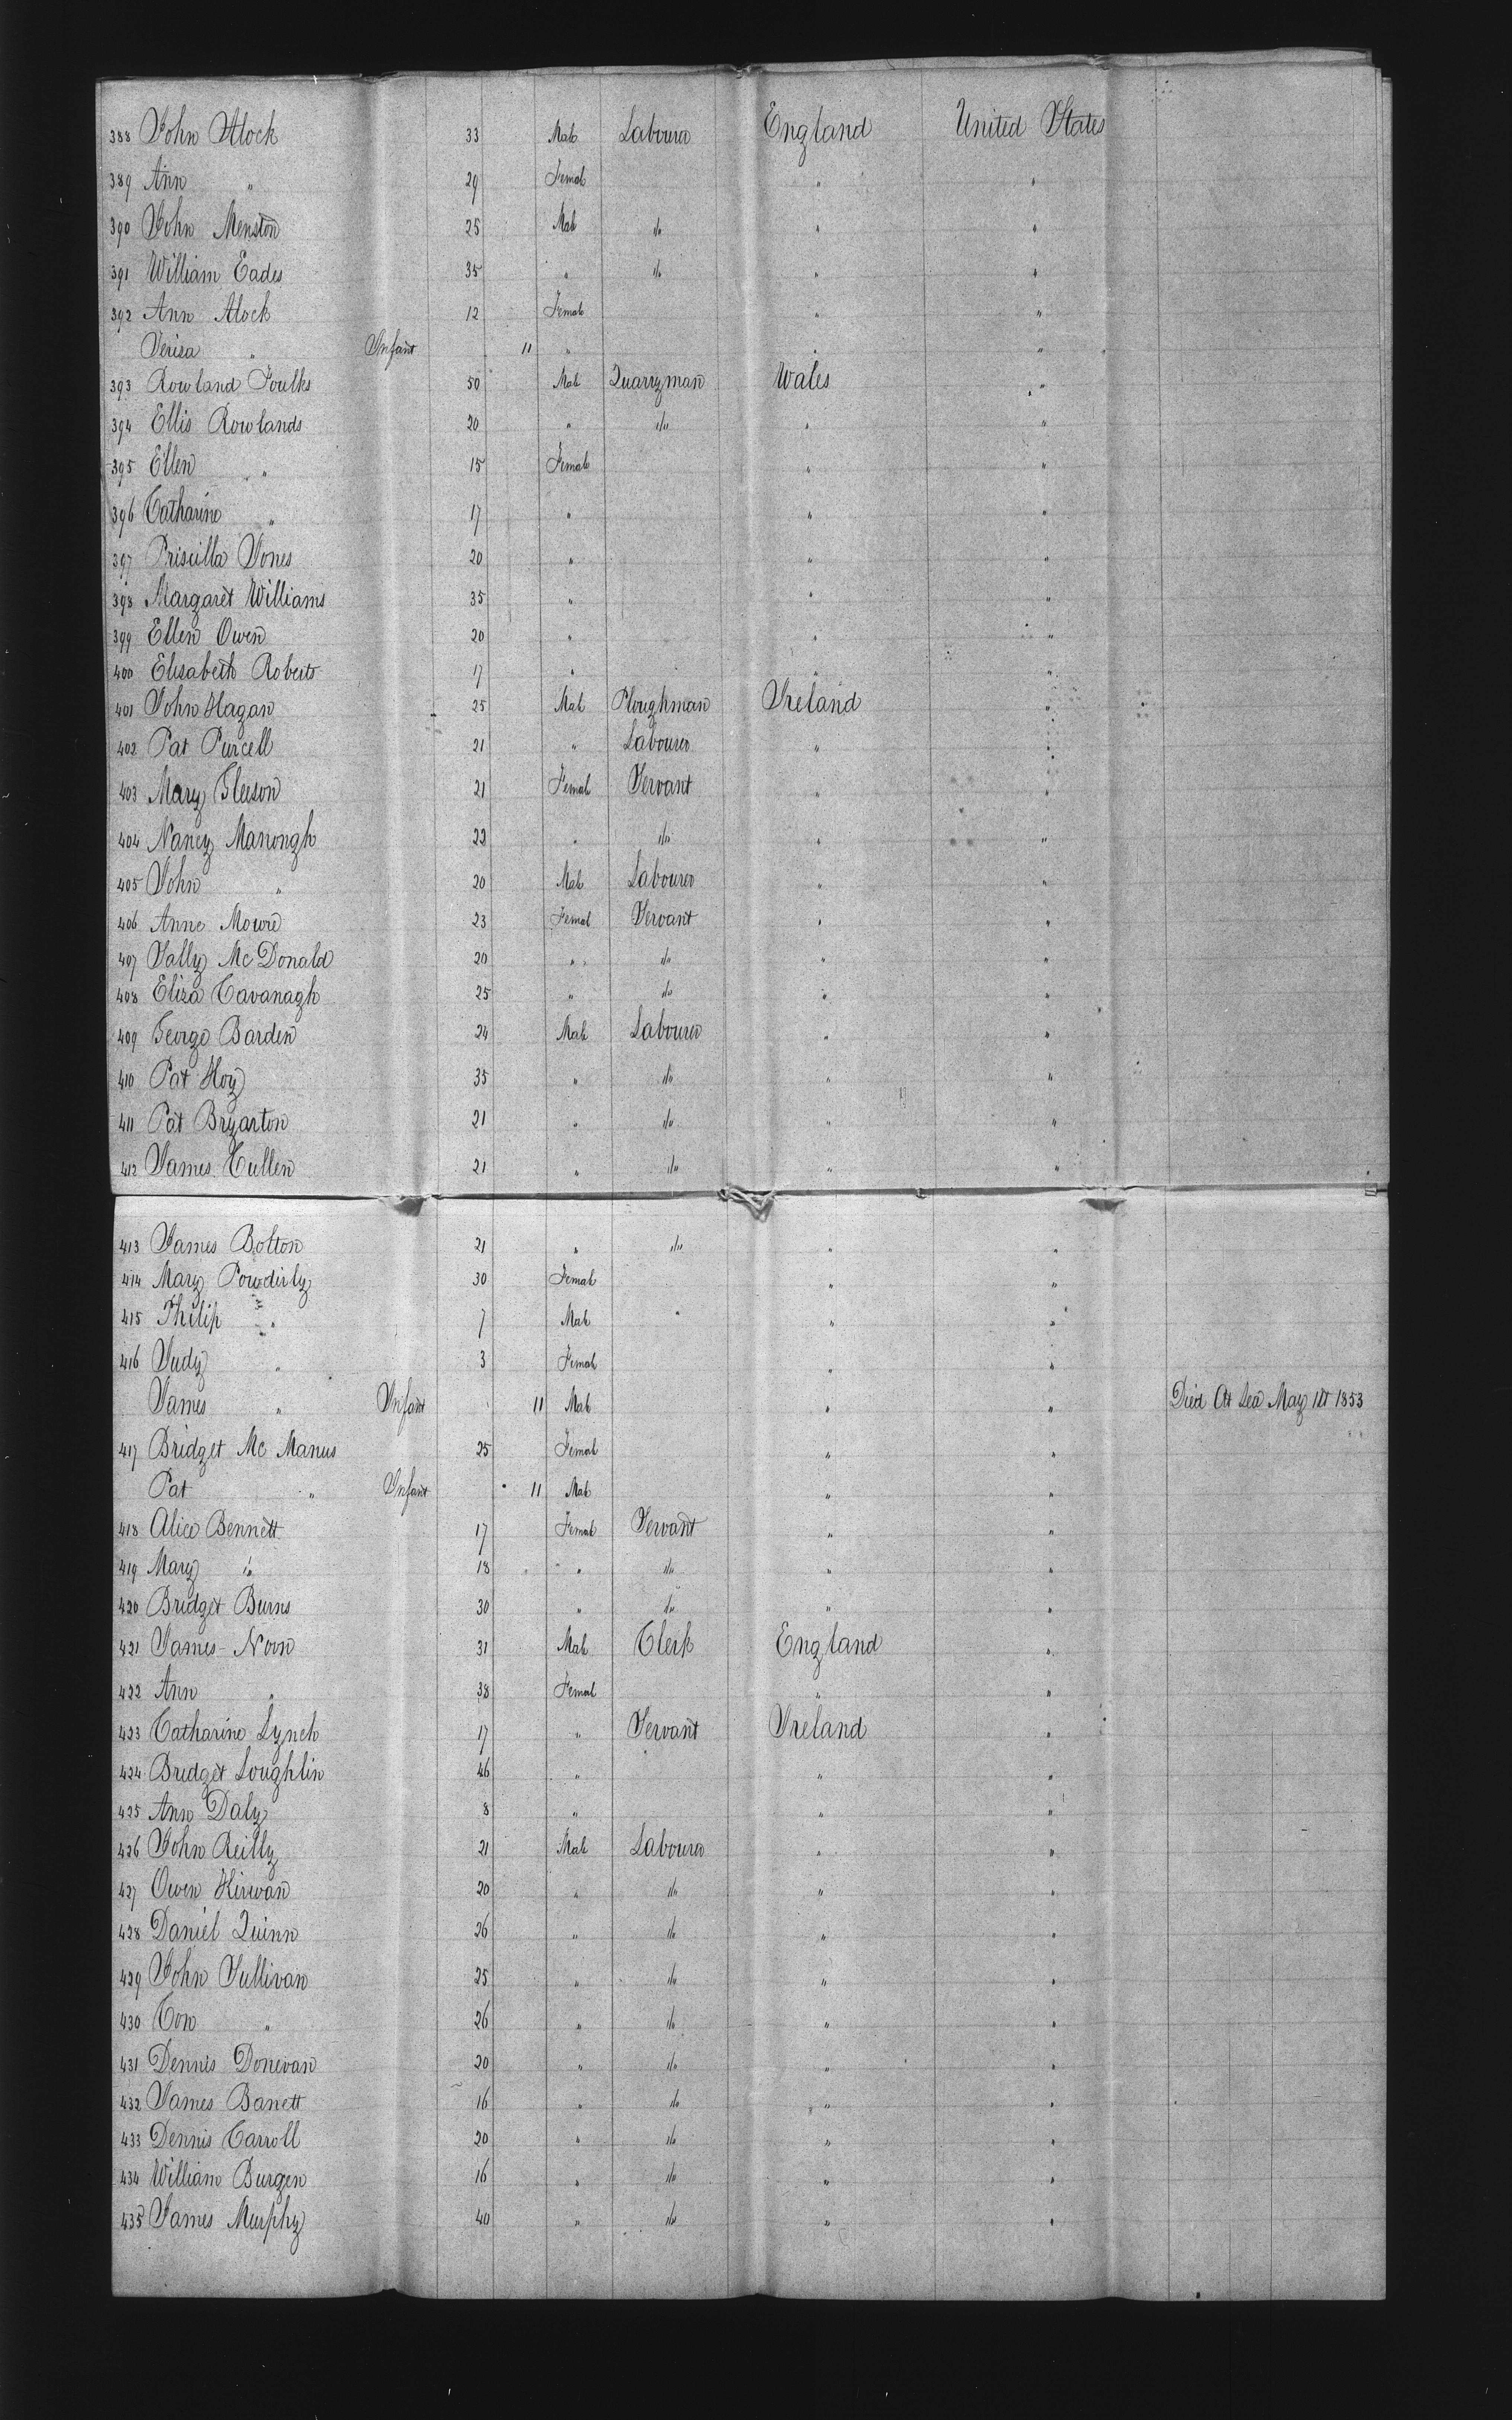 388 John Alock 33 Male Labourer England United States
389 Ann " 29 Female " "
390 John Menston 25 Male do " "
391 William Eades 35 " do " "
392 Ann Alock 12 Female " "
Teriza " Infant 11 " " "
393 Rowland Foulks 50 Male Quarryman Wales "
394 Ellis Rowlands 20 " do " "
395 Ellen " 15 Female " "
396 Catharine " 17 " " "
397 Priscilla Jones 20 " " "
398 Margaret Williams 35 " " "
399 Ellen Owen 20 " " "
400 Elisabeth Roberts 17 " " "
401 John Hagan 25 Male Ploughman Ireland "
402 Pat Purcell 21 " Labourer " "
403 Mary Gleeson 21 Female Servant " "
404 Nancy Manongh 22 " do " "
405 John " 20 Male Labourer " "
406 Anne Moure 23 Female Servant " "
407 Sally Mc Donald 20 " do " "
408 Eliza Cavanagh 25 " do " "
409 George Barden 24 Male Labourer " "
410 Pat Hoy 35 " do " "
411 Pat Bryarton 21 " do " "
412 James Cullen 21 " do " "
413 James Bolton 21 " do " "
414 Mary Powderly 30 Female " "
415 Philip " 7 Male " "
416 Judy " 3 Female " "
James " Infant 11 Male " " Died At Sea May 1st 1853
417 Bridget Mc Manus 25 Female " "
Pat " Infant 11 Male " "
418 Alice Bennett 17 Female Servant " "
419 Mary do 18 " do " "
420 Bridget Burns 30 " do " "
421 James Noon 31 Male Clerk England "
422 Ann " 38 Female " "
423 Catharine Lynch 17 " Servant Ireland "
424 Bridget Loughlin 46 " " "
425 Ann Daly 8 " " "
426 John Reilly 21 Male Labourer " "
427 Owen Kirwan 20 " do " "
428 Daniel Quinn 26 " do " "
429 John Sullivan 25 " do " "
430 Con " 26 " do " "
431 Dennis Donevan 20 " do " "
432 James Barrett 16 " do " "
433 Dennis Carroll 20 " do " "
434 William Burgen 16 " do " "
435 James Murphy 40 " do " "